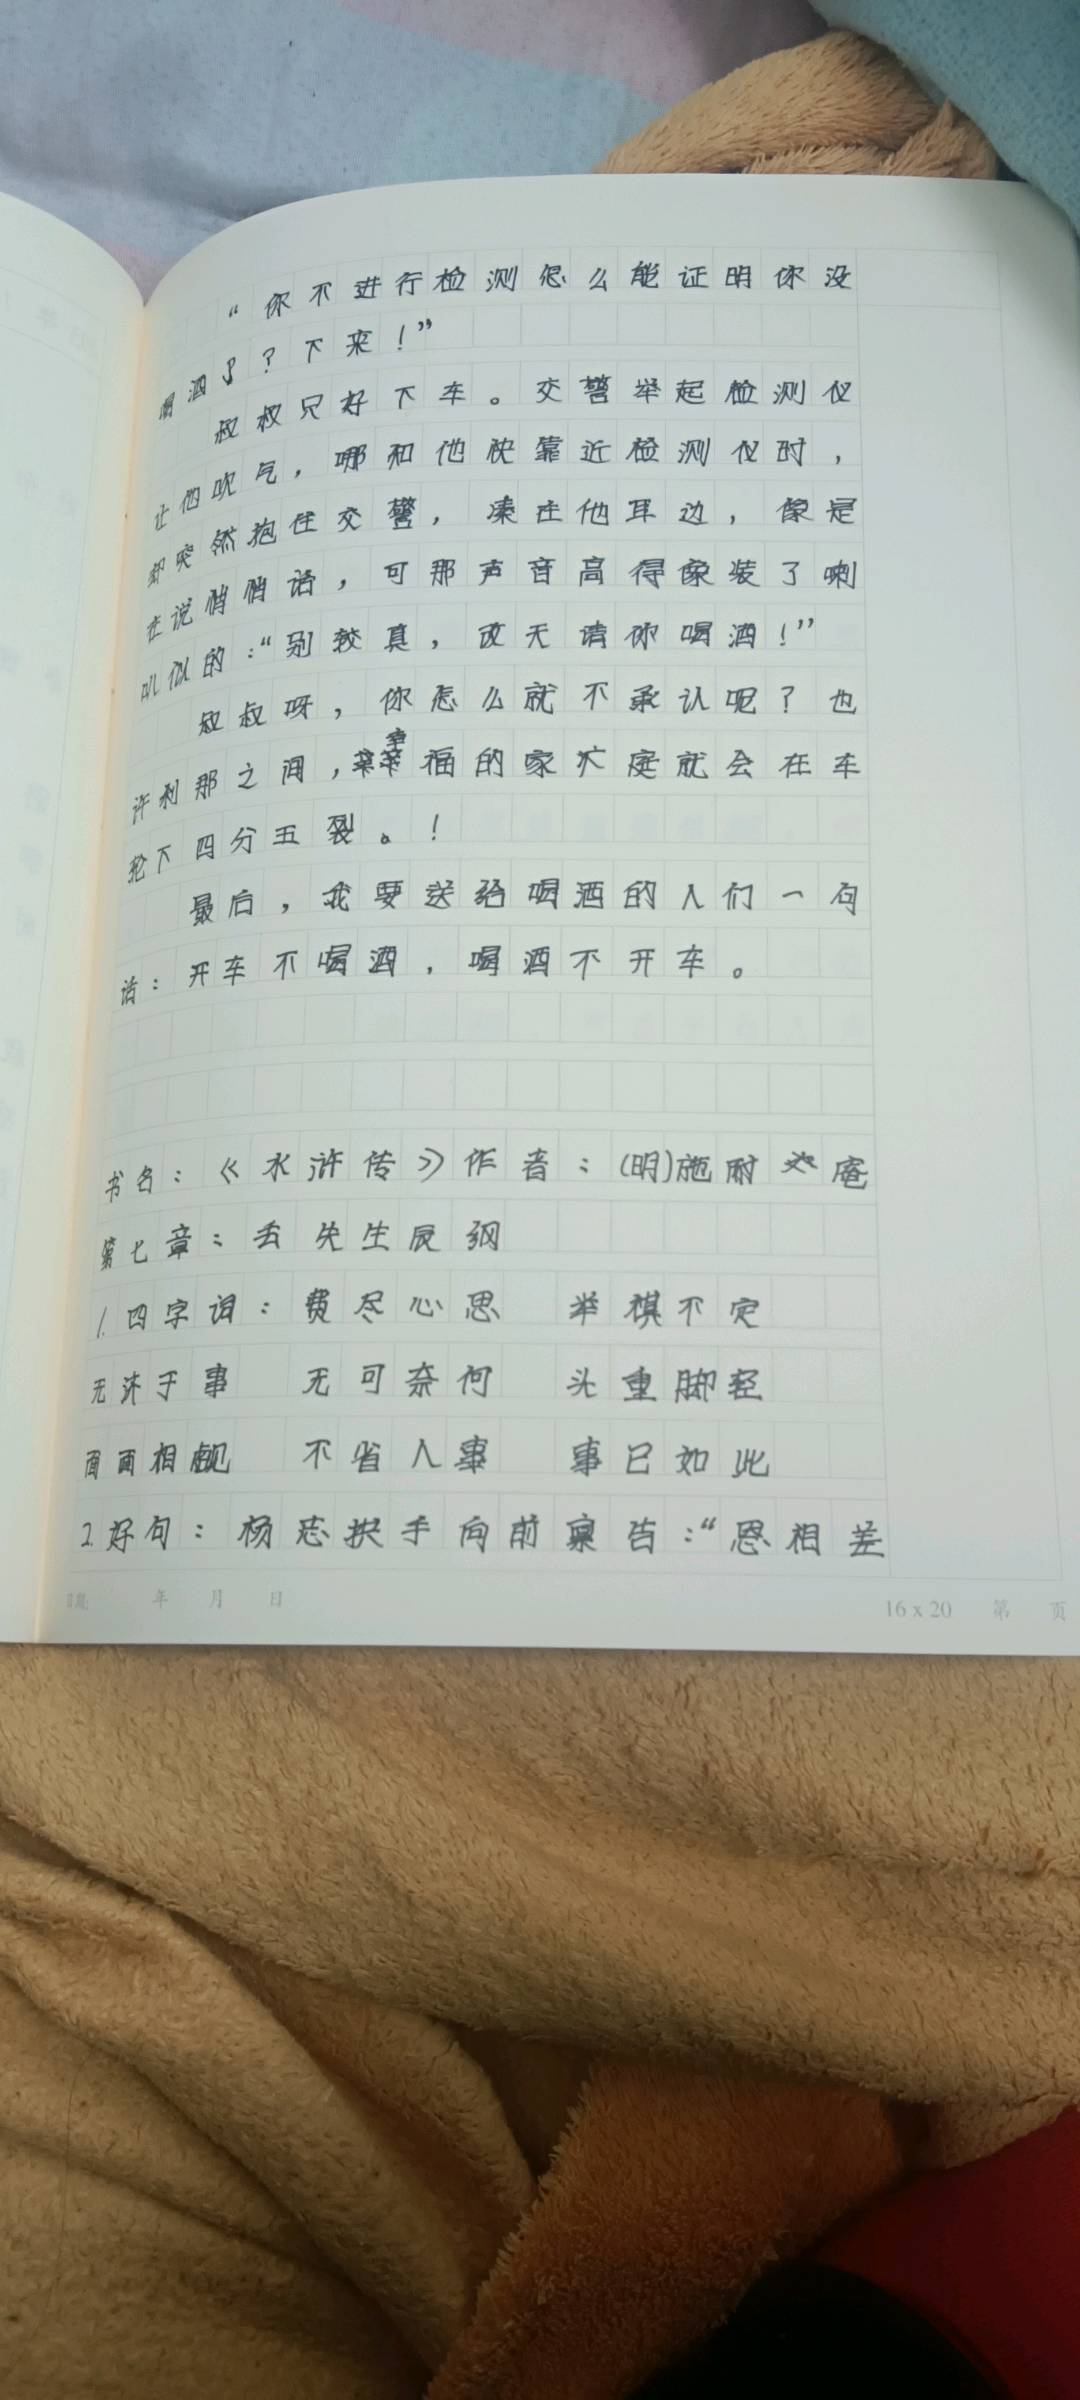 “你不进行检测怎么能证明你没
喝酒了？下来！”
叔叔只好下车。交警举起检测仪
让他吹气，哪和他快靠近检测仪时，
却突然抱住交警，凑在他耳边，像是
在说悄悄话，可那声音高得像装了喇
叭似的：“别较真，改天请你喝酒！”
叔叔呀，你怎么就不承认呢？也
许刹那之间，幸福的家庭就会在车
轮下四分五裂。！
最后，我要送给喝酒的人们一句
话：开车不喝酒，喝酒不开车。
书名：《水浒传》作者：(明)施耐庵
第七章：丢失生辰纲
1.四字词：费尽心思 举棋不定
无济于事 无可奈何 头重脚轻
面面相觑 不省人事 事已如此
2.好句：杨志拱手向前禀告：“恩相差
日期: 年 月 日 16 x 20 第 页